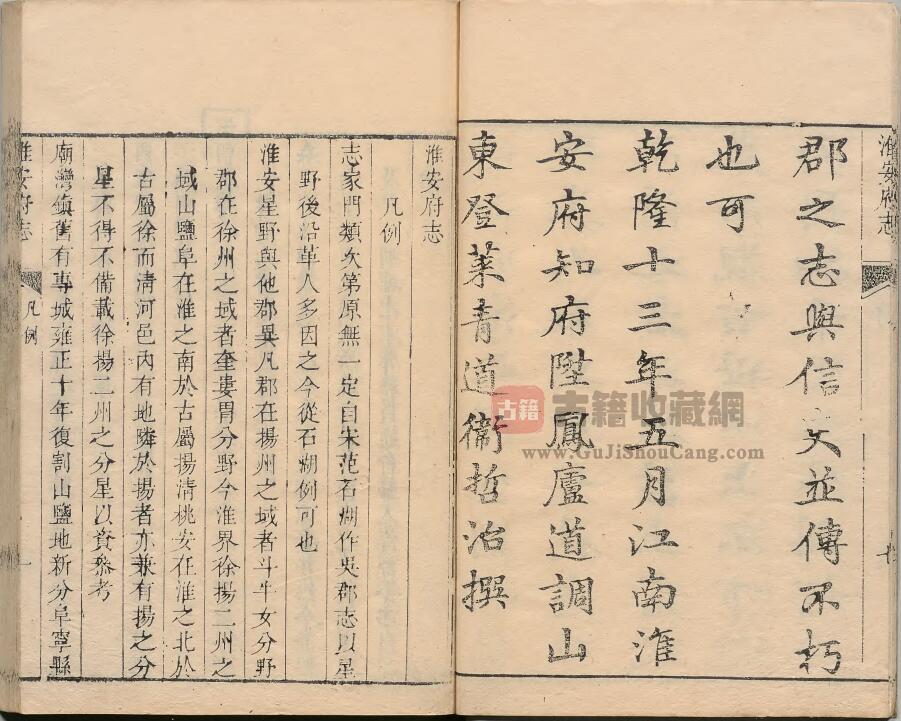 淮安府志
郡之志與信文並傳不朽
也可
乾隆十三年五月江南淮
安府知府陞鳳廬道調山
東登萊青道衞哲治撰
淮安府志
凡例
志家門類次第原無一定自宋范石湖作吳郡志以星
野後沿革人多因之今從石湖例可也
淮安星野與他郡異凡郡在揚州之域者斗牛女分野
郡在徐州之域者奎婁胃分野今淮界徐揚二州之
域山鹽阜在淮之南於古屬揚清桃安在淮之北於
古屬徐而清河邑內有地隣於揚者亦兼有揚之分
星不得不備載徐揚二州之分星以資叅考
廟灣鎮舊有專城雍正十年復割山鹽地新分阜寧縣
淮安府志
凡例
一
古籍
古籍收藏網
www.GuJiShouCang.com